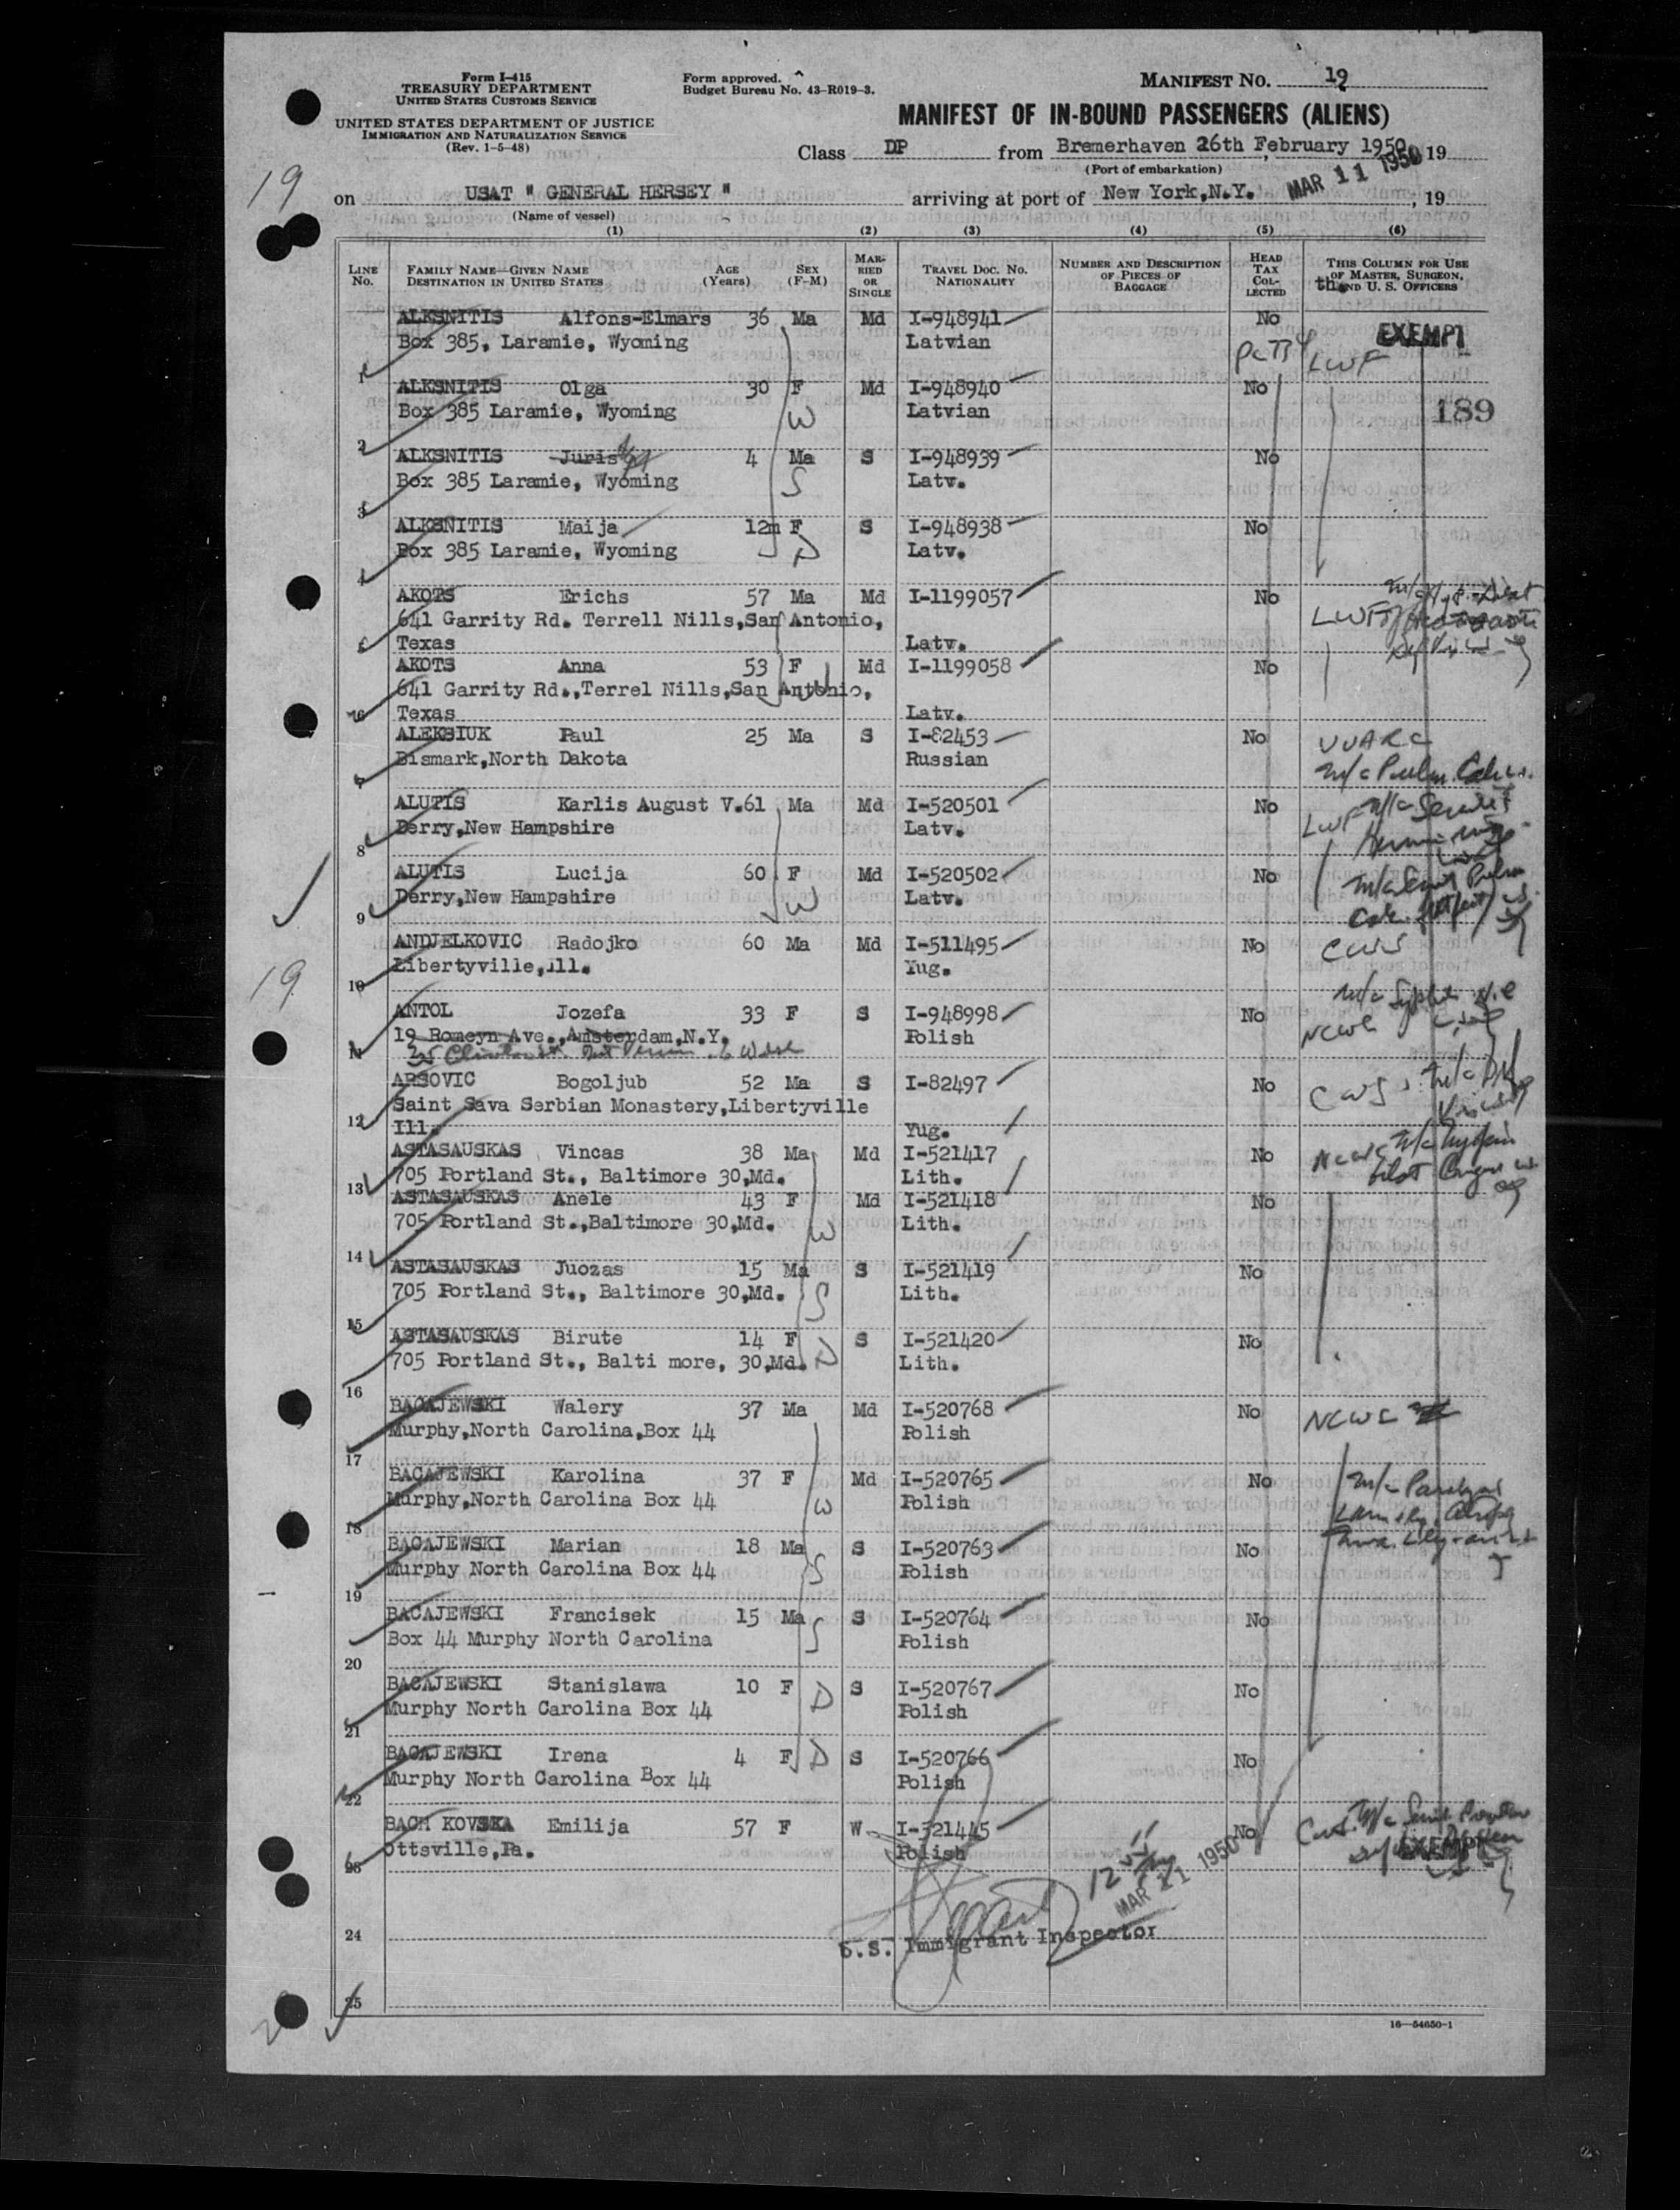 Form I-415
TREASURY DEPARTMENT
UNITED STATES CUSTOMS SERVICE
UNITED STATES DEPARTMENT OF JUSTICE
IMMIGRATION AND NATURALIZATION SERVICE
(Rev. 1-5-48)
Form approved.
Budget Bureau No. 43-R019-3.
MANIFEST NO. 19
MANIFEST OF IN-BOUND PASSENGERS (ALIENS)
Class DP from Bremerhaven 26th February 1950, 19
(Port of embarkation)
19
on USAT " GENERAL HERSEY " arriving at port of New York,N.Y. MAR 11 1950, 19
(Name of vessel)
(1) (2) (3) (4) (5) (6)
LINE No. FAMILY NAME—GIVEN NAME DESTINATION IN UNITED STATES AGE (Years) SEX (F-M) MARRIED OR SINGLE TRAVEL DOC. NO. NATIONALITY NUMBER AND DESCRIPTION OF PIECES OF BAGGAGE HEAD TAX COLLECTED THIS COLUMN FOR USE OF MASTER, SURGEON, AND U. S. OFFICERS
ALKSNITIS Alfons-Elmars 36 Ma Md I-948941 No EXEMPT
Box 385, Laramie, Wyoming Latvian LWF
1
ALKSNITIS Olga 30 F Md I-948940 No
Box 385 Laramie, Wyoming W Latvian 189
2
ALKSNITIS Juris 4 Ma S I-948939 No
Box 385 Laramie, Wyoming S Latv.
3
ALKSNITIS Maija 12m F S I-948938 No
Box 385 Laramie, Wyoming D Latv.
4
AKOTS Erichs 57 Ma Md I-1199057 No
641 Garrity Rd. Terrell Nills,San Antonio, LWF
5 Texas Latv.
AKOTS Anna 53 F Md I-1199058 No
641 Garrity Rd.,Terrel Nills,San Antonio, W
6 Texas Latv.
ALEKSIUK Paul 25 Ma S I-82453 No UUARC
Bismark,North Dakota Russian m/c Pulm. Calc.
7
ALUTIS Karlis August V.61 Ma Md I-520501 No
Derry,New Hampshire Latv. LWF
8
ALUTIS Lucija 60 F Md I-520502 No
Derry,New Hampshire W Latv.
9
ANDJELKOVIC Radojko 60 Ma Md I-511495 No CWS
Libertyville,Ill. Yug.
10
ANTOL Jozefa 33 F S I-948998 No
19 Romeyn Ave.,Amsterdam,N.Y. Polish NCWC
11
ARSOVIC Bogoljub 52 Ma S I-82497 No CWS
Saint Sava Serbian Monastery,Libertyville
12 Ill. Yug.
ASTASAUSKAS Vincas 38 Ma Md I-521417 No NCWC
13 705 Portland St., Baltimore 30,Md. Lith.
ASTASAUSKAS Anele 43 F Md I-521418 No
705 Portland St.,Baltimore 30,Md. W Lith.
14
ASTASAUSKAS Juozas 15 Ma S I-521419 No
705 Portland St., Baltimore 30,Md. S Lith.
15
ASTASAUSKAS Birute 14 F S I-521420 No
705 Portland St., Balti more, 30,Md. D Lith.
16
BACAJEWSKI Walery 37 Ma Md I-520768 No NCWC
Murphy,North Carolina,Box 44 Polish
17
BACAJEWSKI Karolina 37 F Md I-520765 No
Murphy,North Carolina Box 44 W Polish
18
BACAJEWSKI Marian 18 Ma S I-520763 No
Murphy North Carolina Box 44 S Polish
19
BACAJEWSKI Francisek 15 Ma S I-520764 No
Box 44 Murphy North Carolina S Polish
20
BACAJEWSKI Stanislawa 10 F D S I-520767 No
Murphy North Carolina Box 44 Polish
21
BACAJEWSKI Irena 4 F D S I-520766 No
Murphy North Carolina Box 44 Polish
22
BACH KOVSKA Emilija 57 F W I-521445 No
Ottsville,Pa. Polish EXEMPT
23
MAR 11 1950
24 U.S. Immigrant Inspector
25
16—54650-1